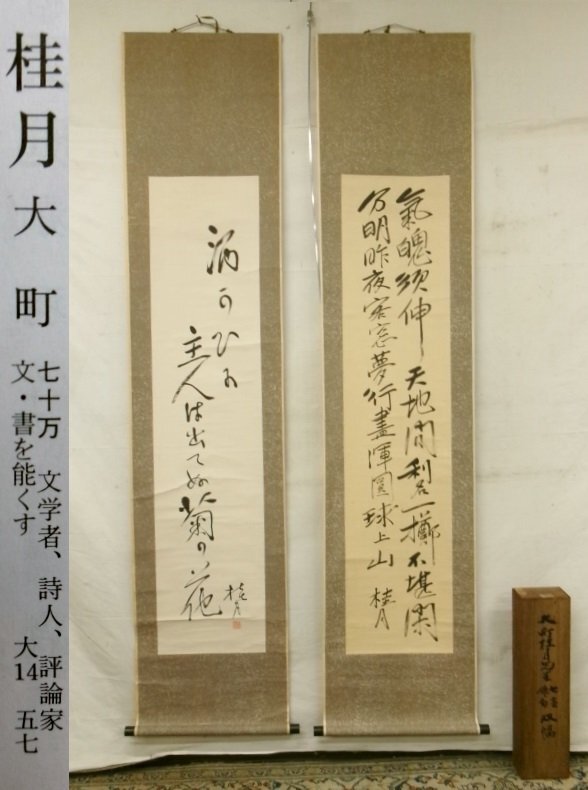 桂月 大町
七十万 文学者、詩人、評論家
文・書を能くす 大14 五七
氣魄須伸天地間利名一擲不堪閑
分明昨夜客窓夢行盡渾圓球上山 桂月
酒かひに
主人は出てぬ菊の花
桂月
大町桂月先生
双幅